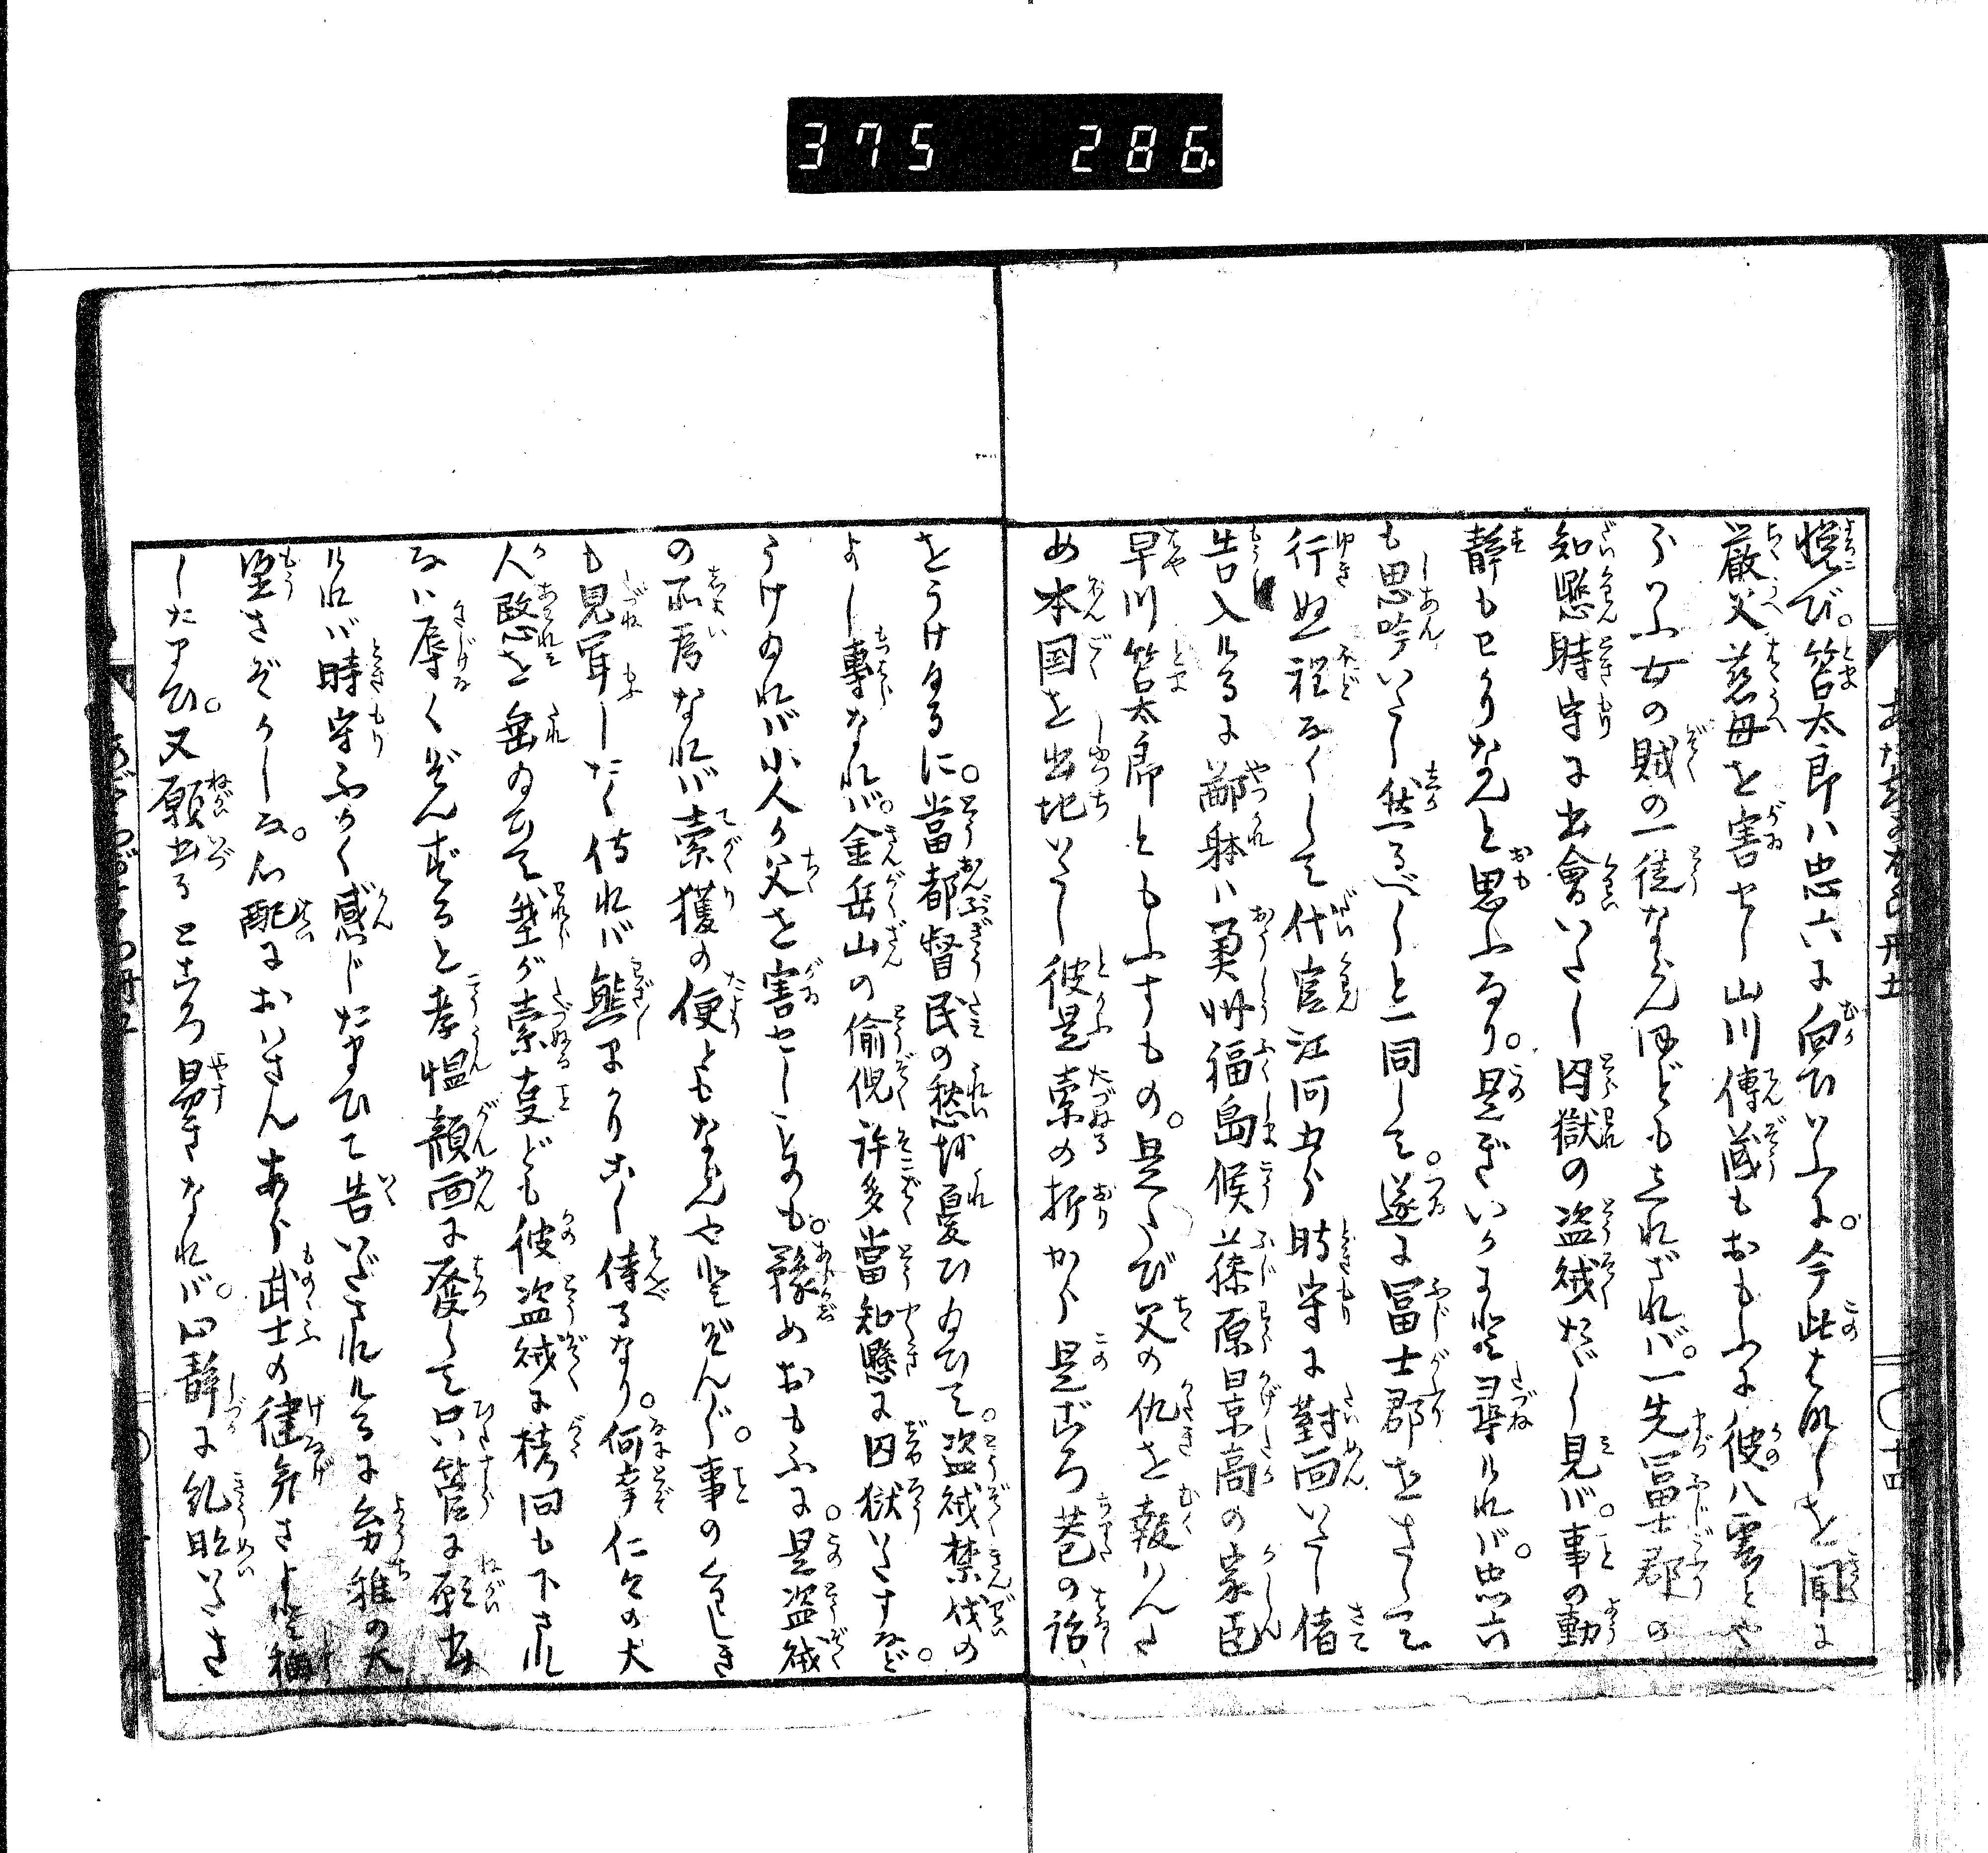 375 286
悦び。笘太郎ハ忠六に向ひいふに。今此はなしを聞に
厳父慈母を害せし山川傳蔵もおもふに彼八雲とや
らいふ女の賊の一徒ならんほども之れざれバ。一先冨士郡の
知懸時守に出會いたし囚獄の盗賊たゞし見バ。事の動
静もわかりなんと思ふなり。是ぎいかにと尋けれバ。忠六
も思吟いたし然るべしと一同して。遂に冨士郡をさして
行ぬ程なくして代官江何某時守に對面いたし偖
告入けるに鄙躰ハ奥州福島候藤原景高の家臣
早川笘太郎ともふすもの。是たび父の仇を報はんた
め本国を出地いたし彼是索の折から是ごろ巷の話
をうけなるに。當都督民の愁を憂ひ給ひて。盗賊禁伐の
よし專なれバ。金岳山の偷倪許多當知懸に囚獄いたすなど。
うけ給れバ小人が父を害せしことも。豫めおもふに。是盗賊
の所為なれバ索獲の便ともなんやと ぞんじ。事の
も見耳したく侍れバ態まかりこし侍るなり。何幸仁々の大
人愍を垂給ひて我が索支ども彼盗賊に拷问も下され
なバ辱くぞんずると孝愠顔面に發して只管に願出
けれバ時守ふかく感じたまひて告いだされけるに幼稚の大
望さぞかしな。心配におハさんあら武士の健気さよと稱
したまひ。又願出るところ易きなれバ。心静に糺明いたさ
十四